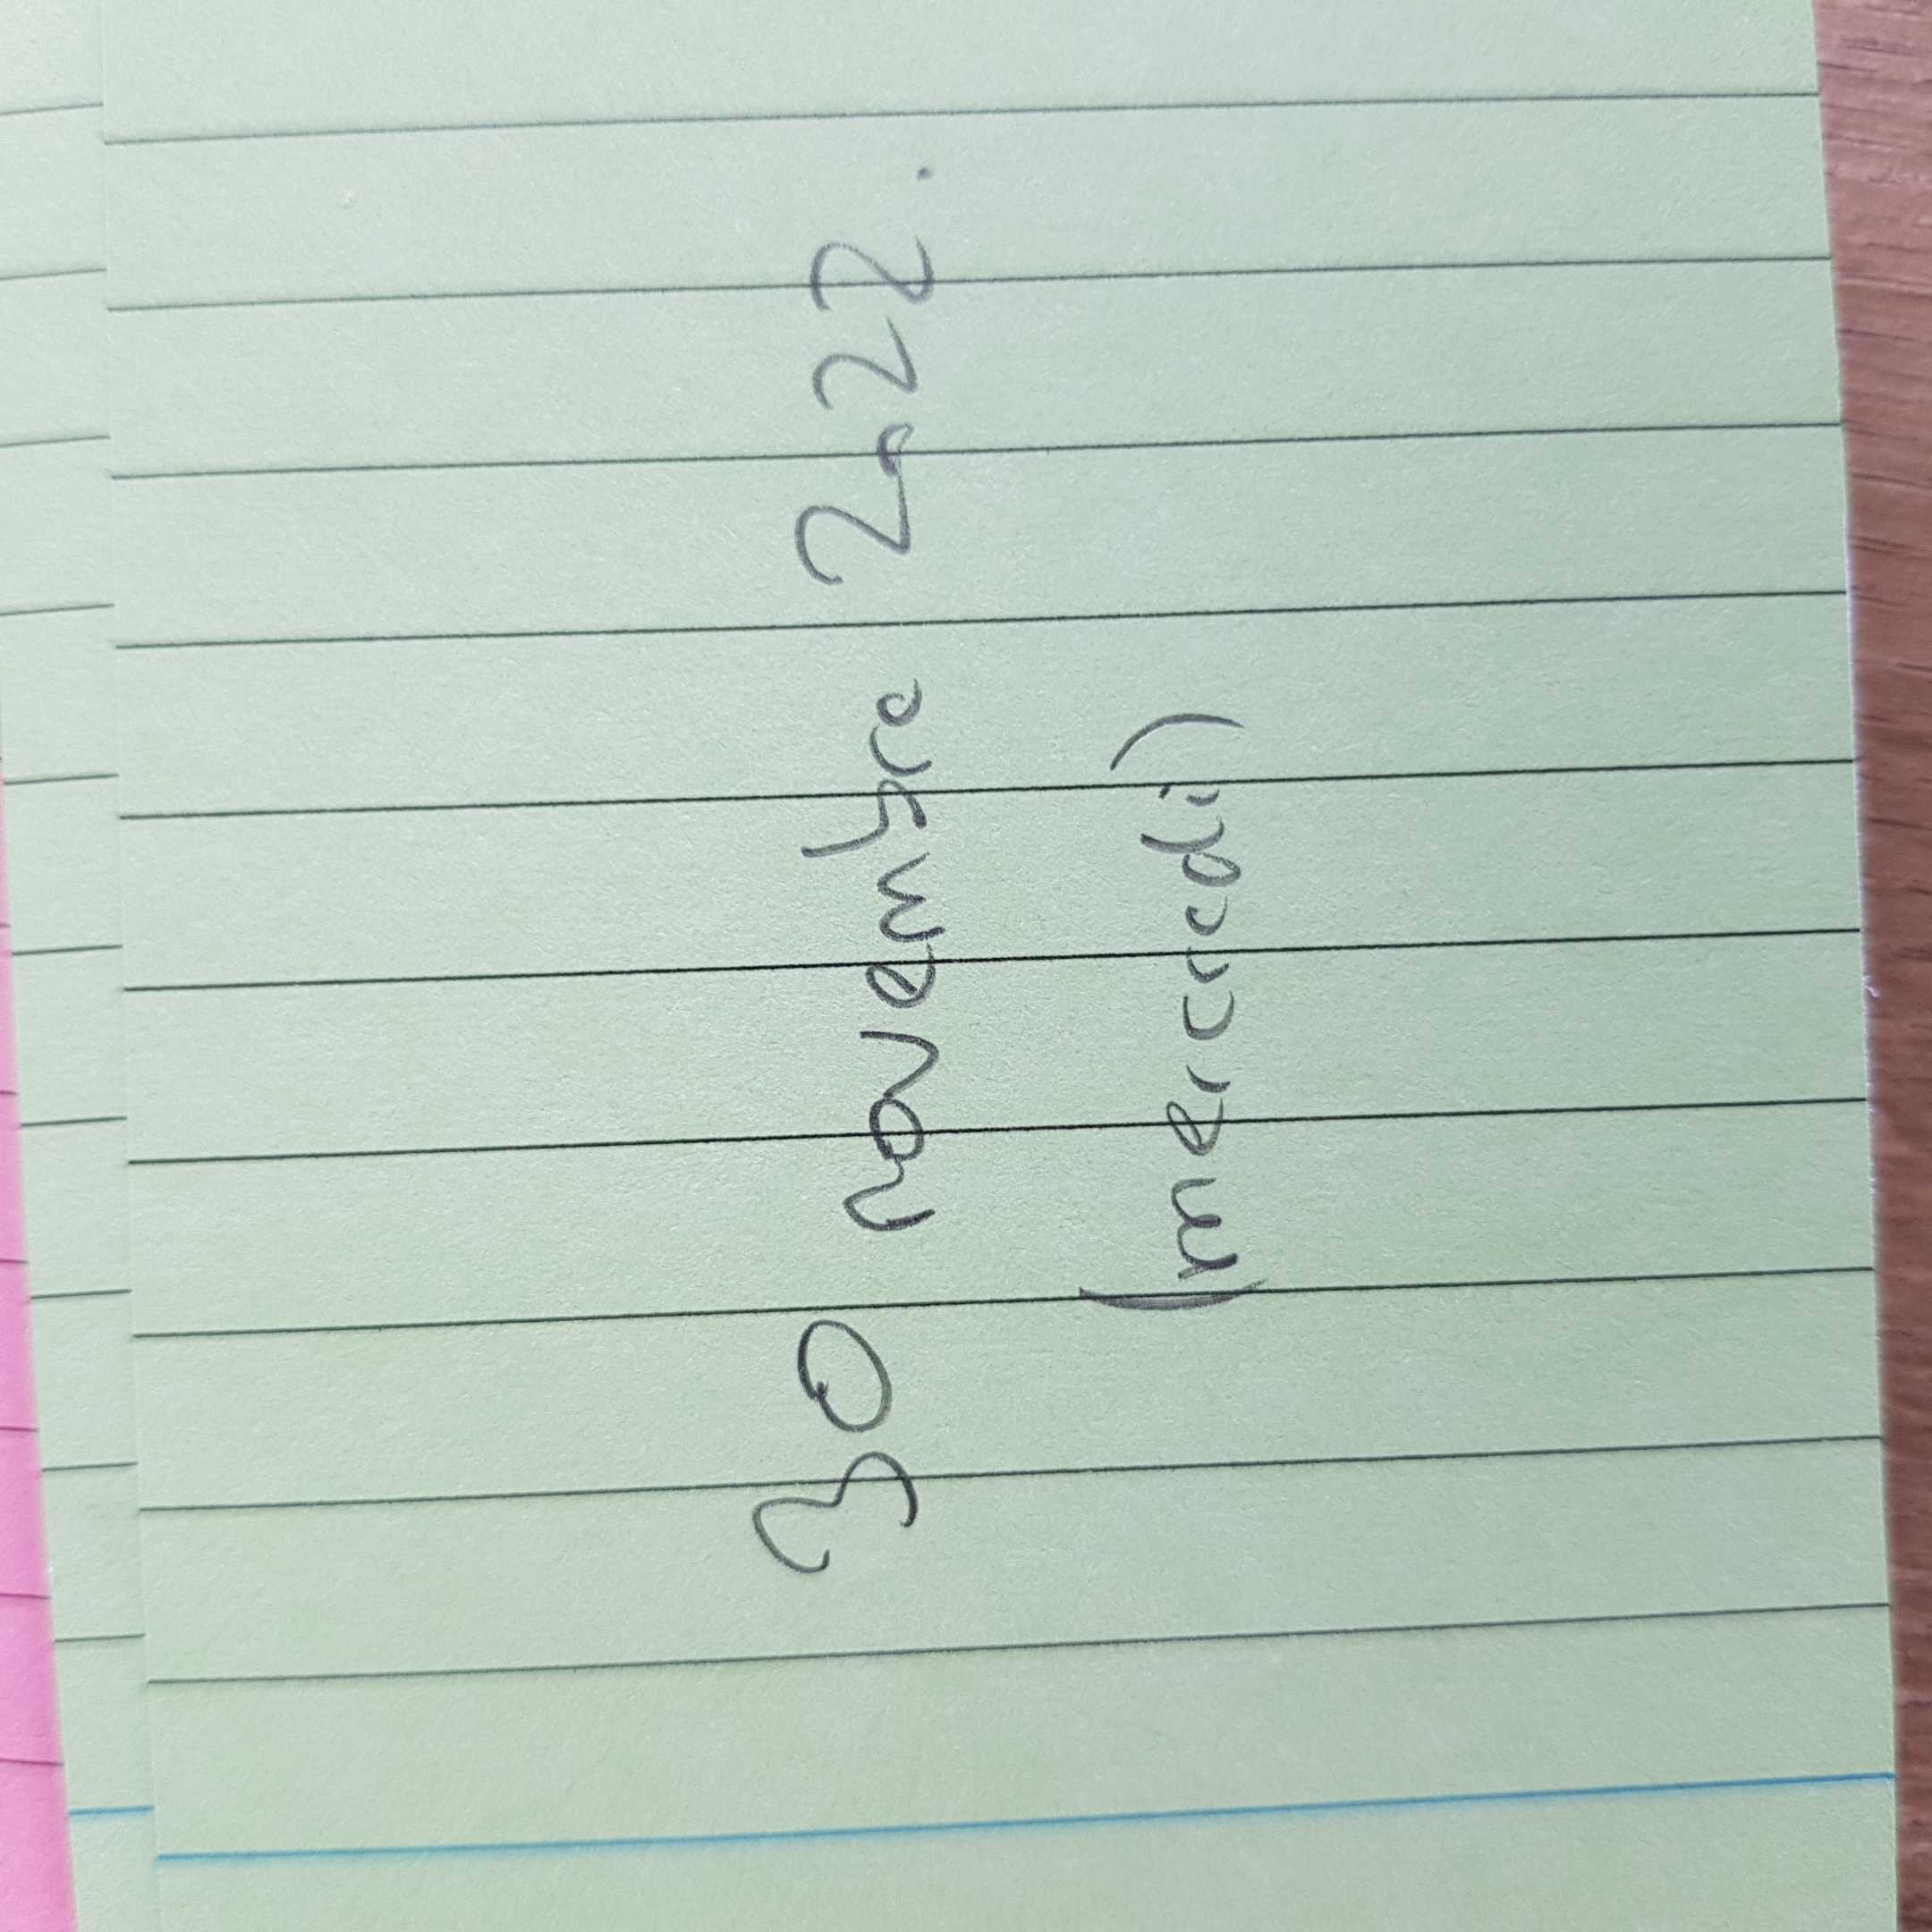 30 novembre 2022.
(mercredi)